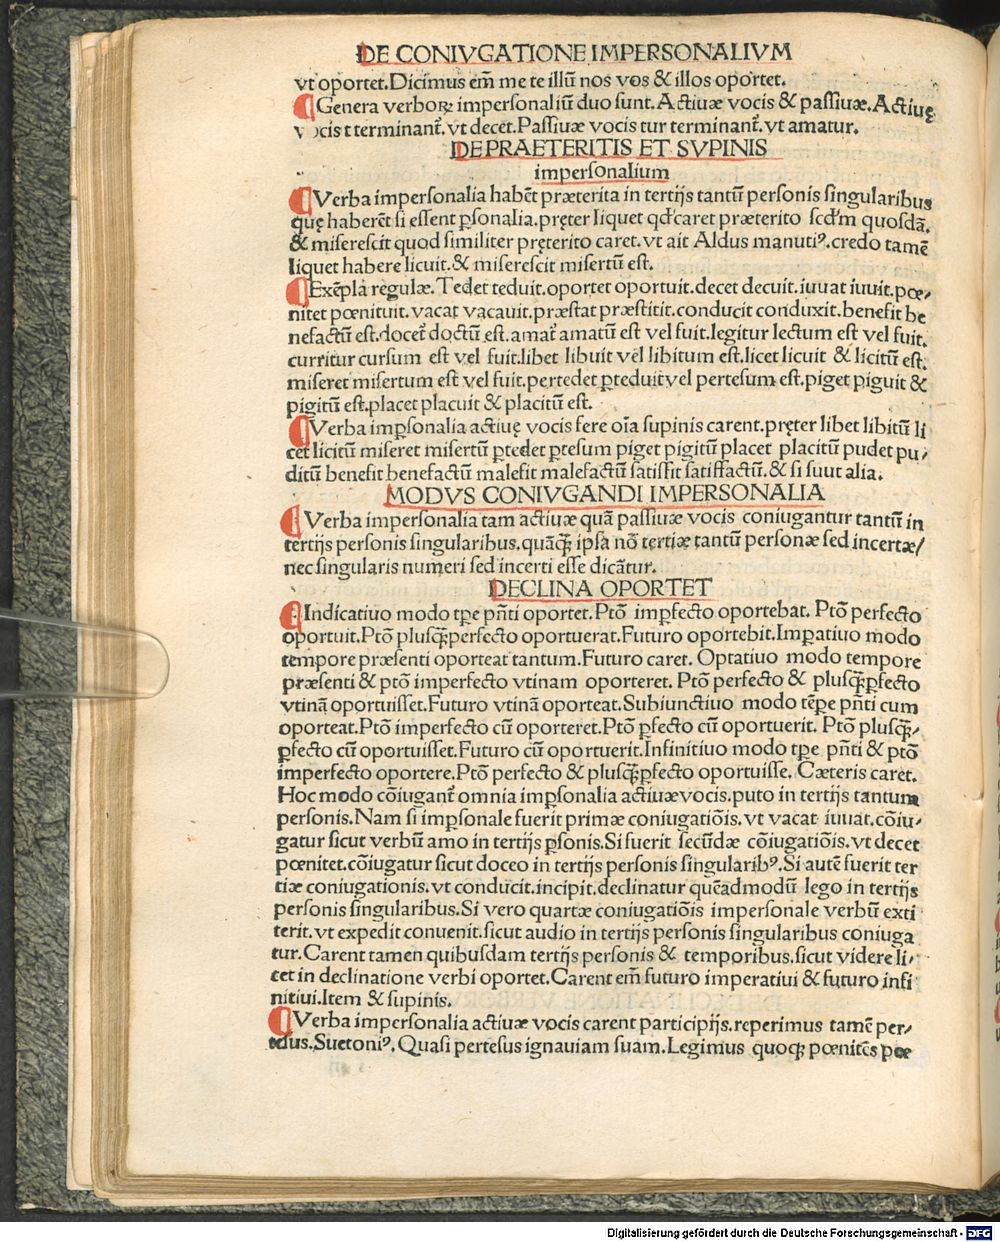 DE CONIVGATIONE IMPERSONALIVM
vt oportet.Dicimus em̄ me te illū nos vos & illos oportet.
Genera verboꝝ impersonaliū duo sunt.Actiuæ vocis & passiuæ.Actiuę
vocis t terminant᷑.vt decet.Passiuæ vocis tur terminant᷑.vt amatur.
DE PRAETERITIS ET SVPINIS
impersonalium
Verba impersonalia habēt præterita in tertijs tantū personis singularibus
quę haberēt si essent ꝑsonalia.pręter liquet qđ caret præterito scđm quosdā.
& miserescit quod similiter pręterito caret.vt ait Aldus manutiꝰ.credo tamē
liquet habere licuit.& miserescit misertū est.
Exēpla regulæ.Tedet teduit.oportet oportuit.decet decuit.iuuat iuuit.pœ-
nitet pœnituit.vacat vacauit.præstat præstitit.conducit conduxit.benefit be
nefactū est.docet᷑ doctū est.amat᷑ amatū est vel fuit.legitur lectum est vel fuit.
curritur cursum est vel fuit.libet libuit vel libitum est.licet licuit & licitū est.
miseret misertum est vel fuit.pertedet ꝑteduit vel pertesum est.piget piguit &
pigitū est.placet placuit & placitū est.
Verba imꝑsonalia actiuę vocis fere oīa supinis carent.pręter libet libitū li
cet licitū miseret misertū ꝑtedet ꝑtesum piget pigitū placet placitū pudet pu-
ditū benefit benefactū malefit malefactū satisfit satisfactū.& si suut alia.
MODVS CONIVGANDI IMPERSONALIA
Verba impersonalia tam actiuæ quā passiuæ vocis coniugantur tantū in
tertijs personis singularibus.quāꝗ̄ ipsa nō tertiæ tantū personæ sed incertæ/
nec singularis numeri sed incerti esse dicātur.
DECLINA OPORTET
Indicatiuo modo tꝑe pn̄ti oportet.Ptō impfecto oportebat. Ptō perfecto
oportuit.Ptō plusꝗ̄perfecto oportuerat.Futuro oportebit.Imꝑatiuo modo
tempore præsenti oporteat tantum.Futuro caret. Optatiuo modo tempore
præsenti & ptō imperfecto vtinam oporteret. Ptō perfecto & plusꝗ̄ꝑfecto
vtinā oportuisset.Futuro vtinā oporteat.Subiunctiuo modo tēꝑe pn̄ti cum
oporteat.Ptō imperfecto cū oporteret.Ptō ꝑfecto cū oportuerit. Ptō plusꝗ̄-
ꝑfecto cū oportuisset.Futuro cū oportuerit.Infinitiuo modo tꝑe pn̄ti & ptō
imperfecto oportere.Ptō perfecto & plusꝗ̄ꝑfecto oportuisse. Cæteris caret.
Hoc modo cōiugant᷑ omnia imꝑsonalia actiuæ vocis.puto in tertijs tantum
personis.Nam si imꝑsonale fuerit primæ coniugatiōis.vt vacat iuuat.cōiu-
gatur sicut verbū amo in tertijs ꝑsonis.Si fuerit secūdæ cōiugatiōis.vt decet
pœnitet.cōiugatur sicut doceo in tertijs personis singularibꝰ.Si autē fuerit ter
tiæ coniugationis.vt conducit.incipit.declinatur quēadmodū lego in tertijs
personis singularibus.Si vero quartæ coniugatiōis impersonale verbū exti
terit.vt expedit conuenit.sicut audio in tertijs personis singularibus coniuga
tur.Carent tamen quibusdam tertijs personis & temporibus.sicut videre li-
cet in declinatione verbi oportet.Carent em̄ futuro imperatiui & futuro infi
nitiui.Item & supinis.
Verba impersonalia actiuæ vocis carent participijs.reperimus tamē per-
tesus.Suetoniꝰ.Quasi pertesus ignauiam suam.Legimus quoqꝫ pœnitēs pœ
Digitalisierung gefördert durch die Deutsche Forschungsgemeinschaft - DFG